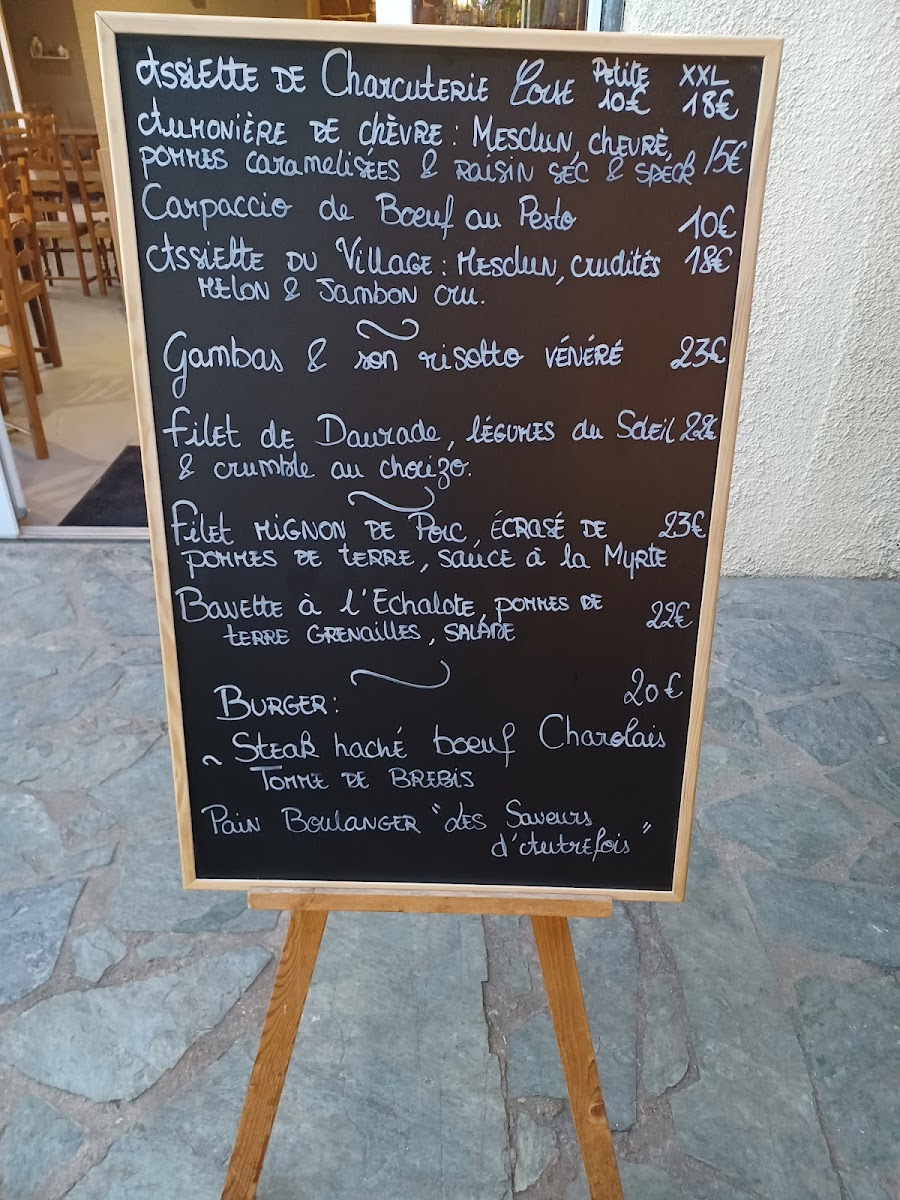 Assiette de Charcuterie Corse Petite XXL
10€ 18€
Aumonière de chèvre : Mesclun, chevrè,
pommes caramelisées & raisin séc & speck 15€
Carpaccio de Boeuf au Pesto 10€
Assiette du Village : Mesclun, crudités 18€
melon & Jambon cru.
Gambas & son risotto vénéré 23€
Filet de Daurade, légumes du Soleil 22€
& crumble au chorizo.
Filet mignon de Porc, écrasé de 23€
pommes de terre, sauce à la Myrte
Bavette à l'Echalote, pommes de
terre Grenailles, salade 22€
Burger : 20€
~ Steak haché boeuf Charolais
Tomme de Brebis
Pain Boulanger "Les Saveurs
d'Autrefois"